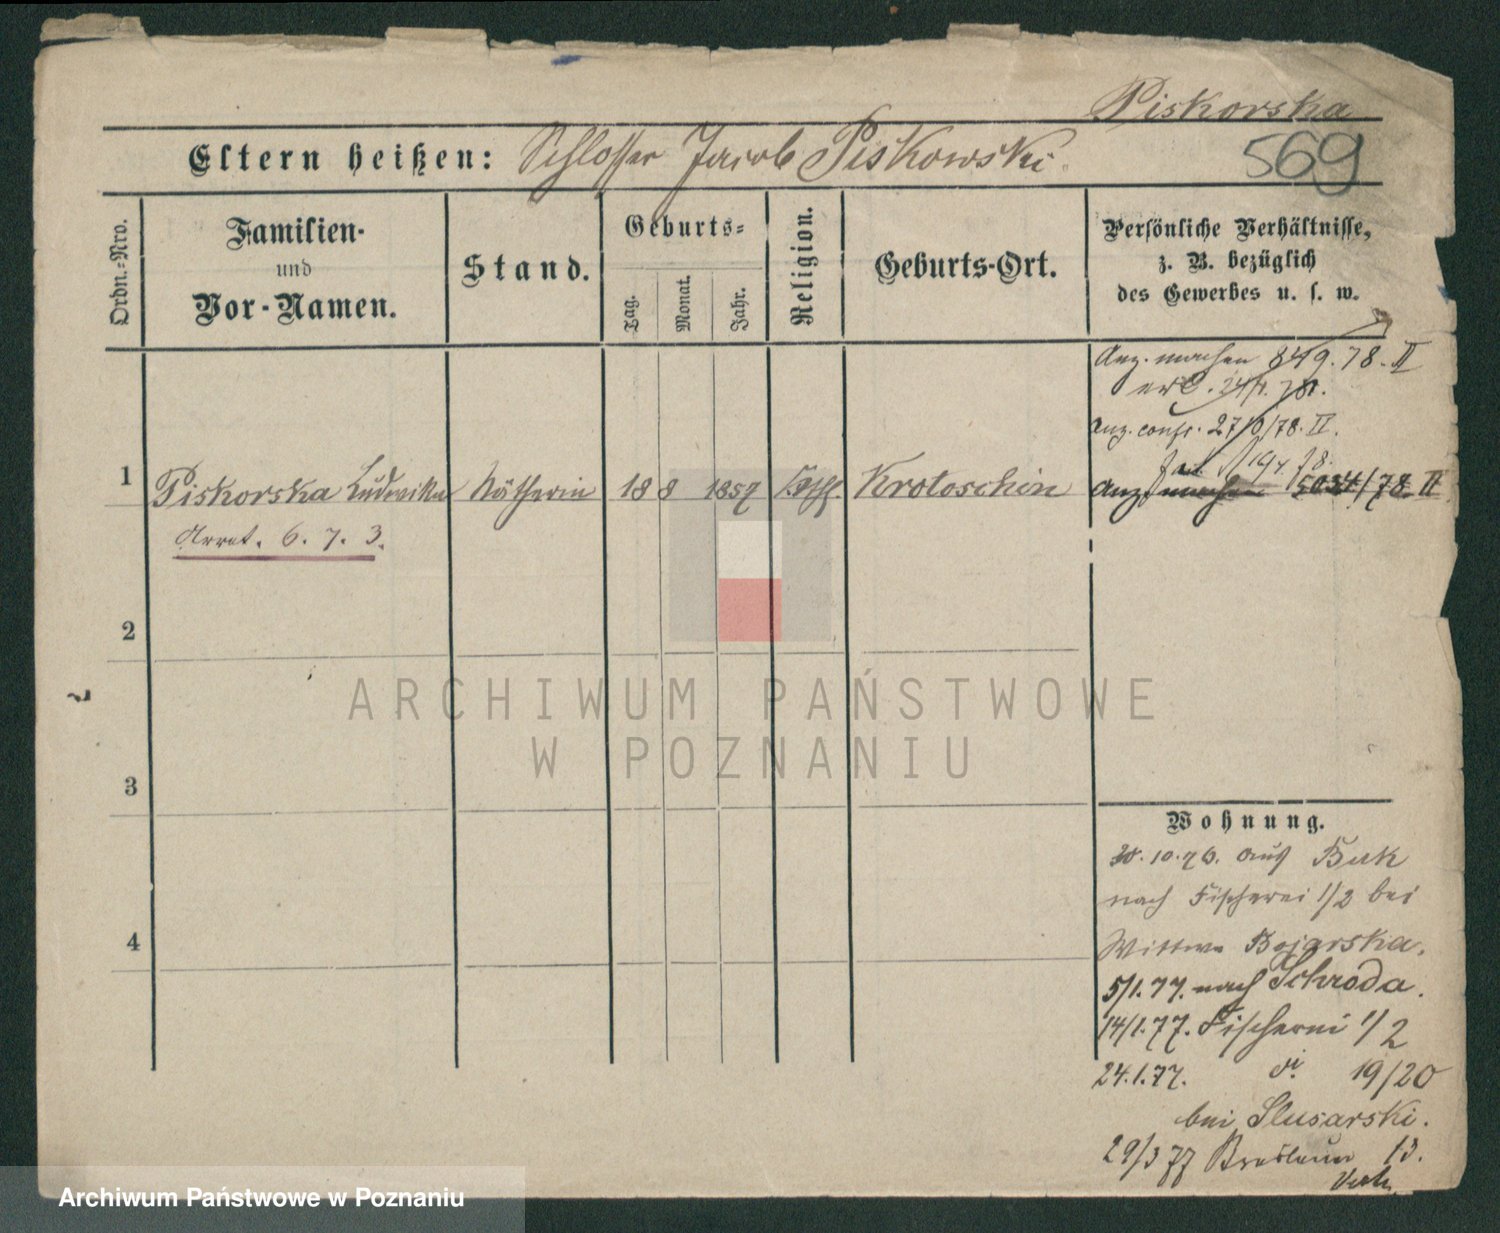 Piskorska
569
Eltern heißen: Schlosser Jacob Piskowski.
Ordn.-Nro.
Familien-
und
Vor-Namen.
Stand.
Geburts-
Tag.
Monat.
Jahr.
Religion.
Geburts-Ort.
Persönliche Verhältnisse,
z. B. bezüglich
des Gewerbes u. s. w.
Anz. machen 849.78. II
Anz. 27/8/78. II.
1 Piskorska Ludovika Nätherin 18 8 1857 kath. Krotoschin
Anz. machen 5034/78 II
Arret. 6. 7. 3.
2
3
4
Wohnung.
30.10.76. aus Buk
nach Fischerei 1/2 bei
Wittwe Bojarska.
5/1.77. nach Schroda.
14/1.77. Fischerei 1/2
24.1.77. do 19/20
bei Slusarski.
29/3 77 Breslauer 13.
ARCHIWUM PAŃSTWOWE
W POZNANIU
Archiwum Państwowe w Poznaniu